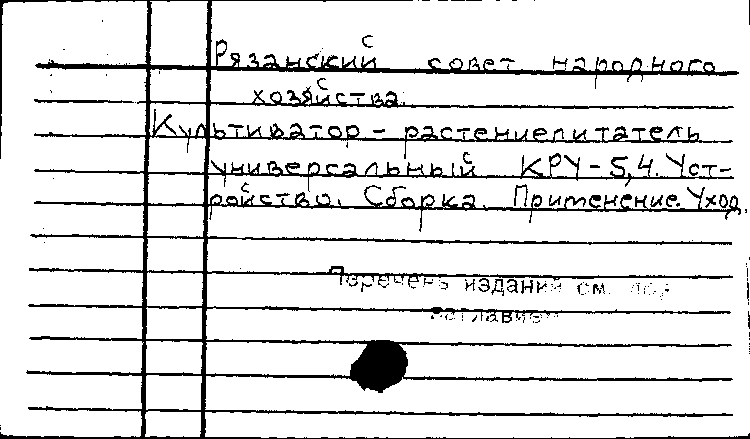 Рязанский совет народного
хозяйства.
Культиватор - растениепитатель
универсальный КРУ-5,4. Уст-
ройство. Сборка. Применение. Уход.
Перечень изданий см. под
заглавием